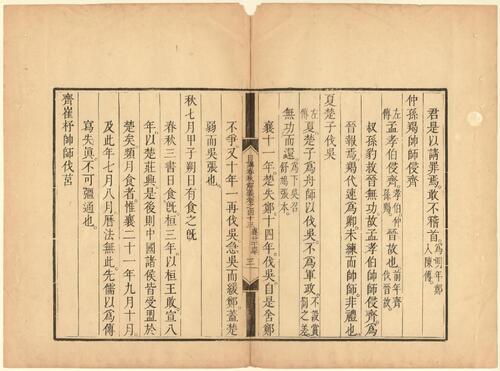 君是以請罪焉敢不稽首為明年鄭入陳傳
仲孫羯帥師侵齊
左傳孟孝伯侵齊孝伯仲孫羯晉故也前年齊伐晉故
叔孫豹救晉無功故孟孝伯帥師侵齊為
晉報焉羯代速為卿未練而帥師非禮也
夏楚子伐吳
左傳夏楚子為舟師以伐吳不為軍政不設賞罰之差
無功而還為下吳召舒鳩張本
襄十一年楚失鄭十四年伐吳自是舍鄭
日講春秋解義卷之四十三 襄二十四年 三
不爭又十年一再伐吳急吳而緩鄭蓋楚
弱而吳張也
秋七月甲子朔日有食之旣
春秋三書日食旣桓三年以桓王敗宣八
年以楚莊興是後則中國諸侯皆受盟於
楚矣頻月食者惟襄二十一年九月十月
及此年七月八月曆法無此先儒以為傳
寫失眞不可彊通也
齊崔杼帥師伐莒